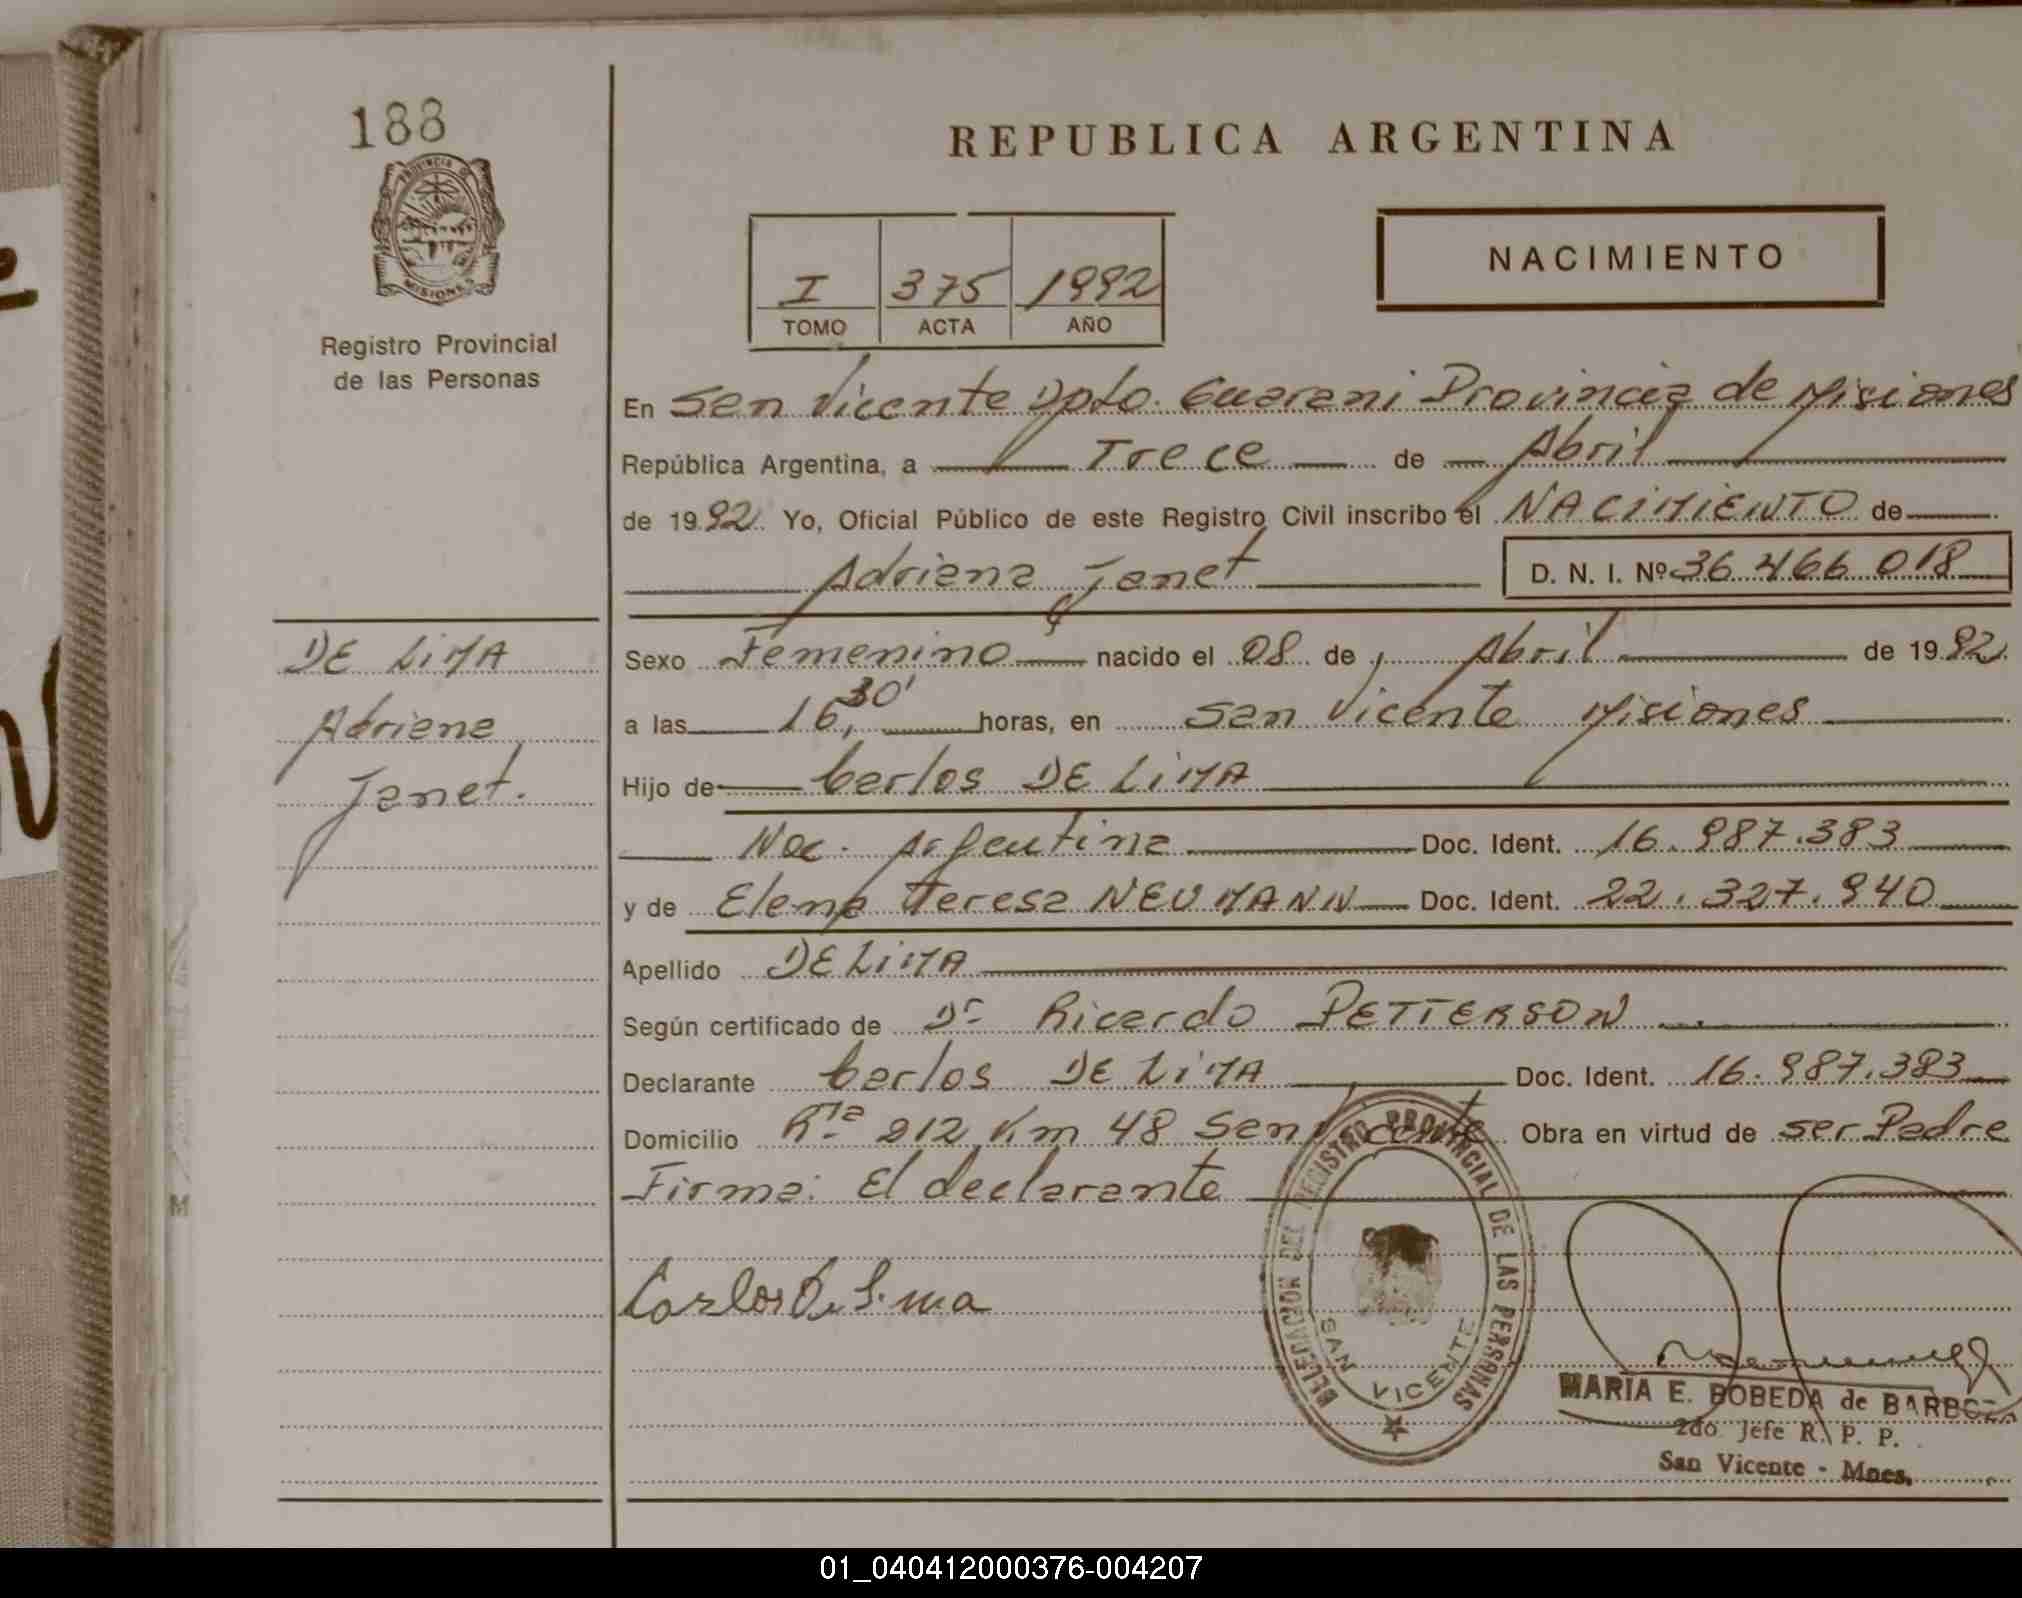 188
PROVINCIA DE
MISIONES
Registro Provincial
de las Personas
REPUBLICA ARGENTINA
I 375 1992
TOMO ACTA AÑO
NACIMIENTO
En San Vicente Dpto. Guarani Provincia de Misiones
República Argentina, a Trece de Abril
de 1992 Yo, Oficial Público de este Registro Civil inscribo el NACIMIENTO de
Adriana Janet D. N. I. Nº 36.466.018
DE LIMA
Adriana
Janet.
Sexo Femenino nacido el 08 de Abril de 1992
a las 16,30' horas, en San Vicente Misiones
Hijo de Carlos DE LIMA
Nac. Argentina Doc. Ident. 16.987.383
y de Elena Teresa NEUMANN Doc. Ident. 22.327.940
Apellido DE LIMA
Según certificado de Dr Ricardo PETTERSON
Declarante Carlos DE LIMA Doc. Ident. 16.987.383
Domicilio Rta 212 Km 48 San Vicente Obra en virtud de ser Padre
Firma: El declarante
Carlos De Lima
DELEGACION DEL REGISTRO PROVINCIAL DE LAS PERSONAS
SAN VICENTE
MARIA E. BOBEDA de BARBOZA
2do Jefe R. P. P.
San Vicente - Mnes.
M
01_040412000376-004207